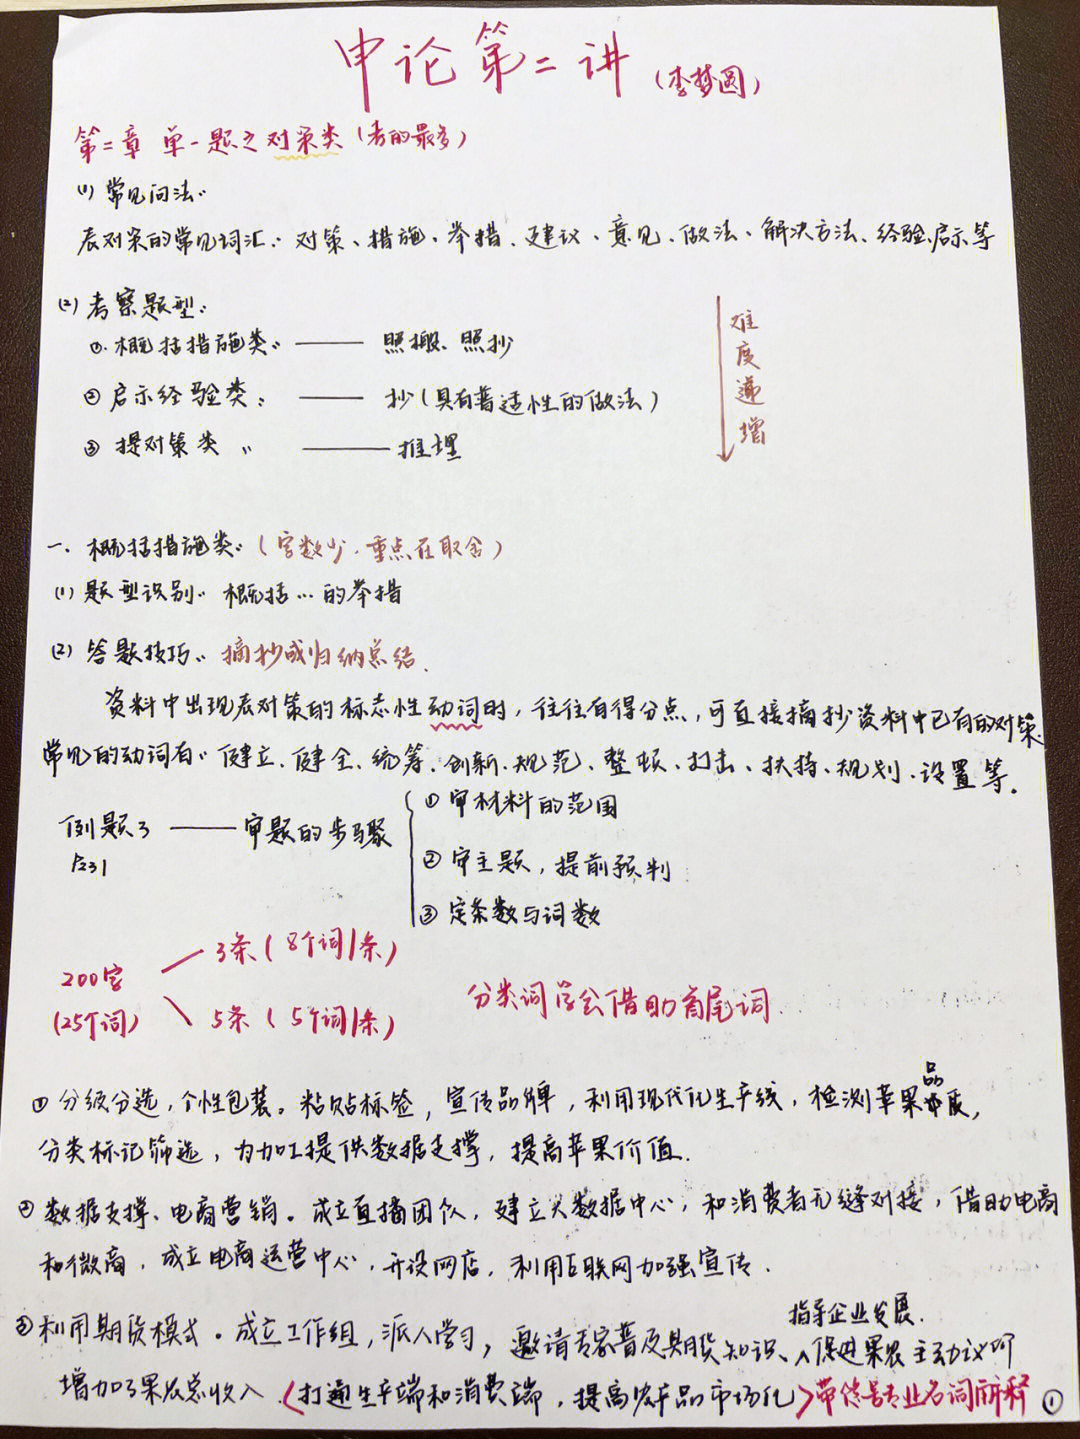 申论第二讲 (李梦圆)
第二章 单一题之对策类 (考的最多)
(1) 常见问法:
表对策的常见词汇: 对策、措施、举措、建议、意见、做法、解决方法、经验、启示等
(2) 考察题型:
①. 概括措施类: —— 照搬、照抄
② 启示经验类: —— 抄(具有普适性的做法)
③ 提对策类: —— 推理
难度递增
一. 概括措施类: (字数少, 重点在取舍)
(1) 题型识别: 概括…的举措
(2) 答题技巧: 摘抄或归纳总结.
资料中出现表对策的标志性动词时, 往往有得分点, 可直接摘抄资料中已有的对策.
常见的动词有: 建立、健全、统筹、创新、规范、整顿、打击、扶持、规划、设置等。
例题3 —— 审题的步骤
P231
① 审材料的范围
② 审主题, 提前预判
③ 定条数与词数
200字
(25个词)
3条 (8个词/条)
5条 (5个词/条)
分类词学会借助首尾词
① 分级分选, 个性包装。粘贴标签, 宣传品牌, 利用现代化生产线, 检测苹果品质,
分类标记筛选, 为加工提供数据支撑, 提高苹果价值.
② 数据支撑、电商营销。成立直播团队, 建立大数据中心, 和消费者无缝对接, 借助电商
和微商, 成立电商运营中心, 开设网店, 利用互联网加强宣传.
指导企业发展.
③ 利用期货模式。成立工作组, 派人学习, 邀请专家普及期货知识、∧促进果农主动议价
增加了果农总收入. (打通生产端和消费端, 提高农产品市场化) 带信号专业名词解释 ①